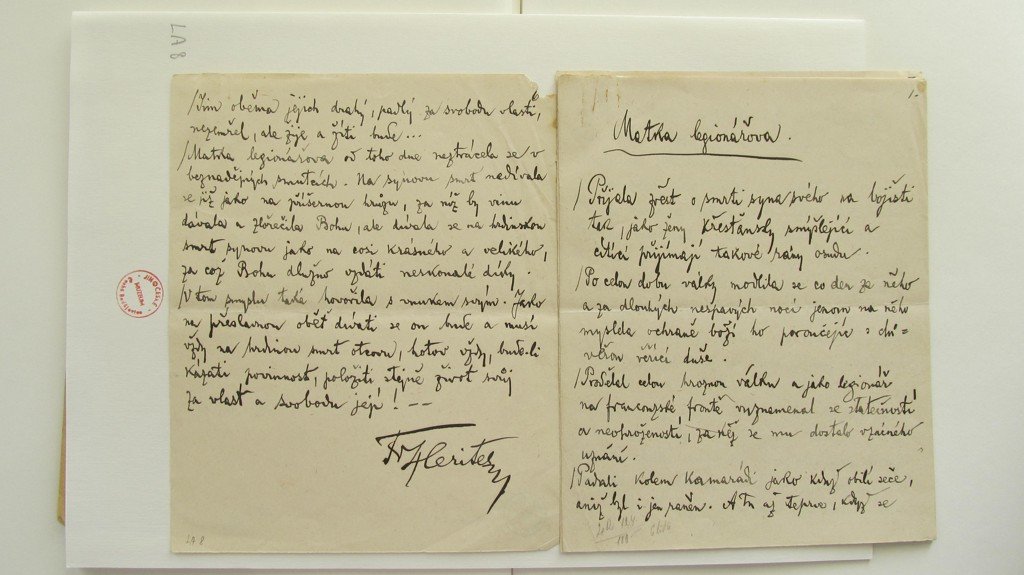 LA 8
/Tím oběma jejich drahý, padlý za svobodu vlasti,
nezemřel, ale žije a žíti bude...
/Matka legionářova od toho dne neztrácela se v
beznadějných smutcích. Na synovu smrt nedívala
se již jako na příšernou hrůzu, za níž by vinu
dávala a zlořečila Bohu, ale dívala se na hrdinskou
smrt synovu jako na cosi krásného a velikého,
za což Bohu dlužno vzdáti neskonalé díky.
/V tom smyslu také hovořila s vnukem svým. Jako
na přeslavnou oběť dívati se on bude a musí
vždy na hrdinou smrt otcovu, hotov vždy, bude-li
kázati povinnost, položiti stejně život svůj
za vlast a svobodu její! – –
Fr Heritesy
LA 8
1.
Matka legionářova.
/Přijala zvěst o smrti syna svého na bojišti
tak, jako ženy křesťansky smýšlející a
cítící přijímají takové rány osudu.
/Po celou dobu války modlila se co den za něho
a za dlouhých nespavých nocí jenom na něho
myslela ochraně boží ho poroučejíc s dů=
věrou věřící duše.
/Prodělal celou hroznou válku a jako legionář
na francouzské frontě vyznamenal se statečností
a neohrožeností, za něž se mu dostalo vzácného
uznání.
/Padali kolem kamarádi jako když obilí seče,
aniž byl i jen raněn. A tu až teprve, když se
JIHOČESKÉ MUZEUM
České Budějovice